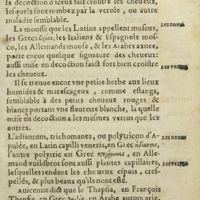 la decoction d'iceux fait croistre les cheueux,
lesquels sont tombez par la verole, ou autre
maladie semblable.
La mousse que les Latins appellent muscus,
les Grecs les Italiens & Espagnols mos-
co, les Allemands moosz, & les Arabes axnec,
porte encor quelque signature des cheueux:
aussi mise en decoction fait fort bien croistre
les cheueux.
Il se treuue encor vne petite herbe aux lieux
humides & marescageux, comme estangs,
semblable à des petits cheueux rouges &
blancs portant vne fleurette blanche, laquelle
mise en decoction a les mesmes vertus que les
autres.
L'adiantum, trichomanes, ou polytricon d'A-
pulée, en Latin capilli veneris, en Grec
l'autre polytric en Grec en Alle-
mand sont aussi plantes capillaires,
lesquelles rendent les cheueux espois, cres-
pellés, & plus beaux qu'ils n'ont esté.
Auicenne dict que le Thapsia, en François
Thapsie, en Grec en Arabe
Les noms.
Les vertus.